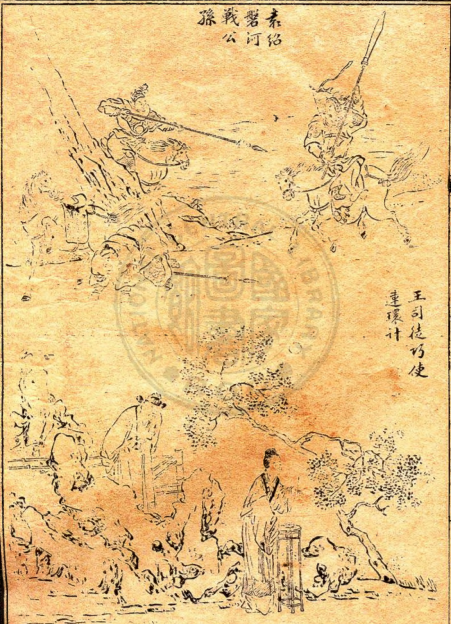 袁紹
磐河
戰公
孫
王司徒巧使
連環計